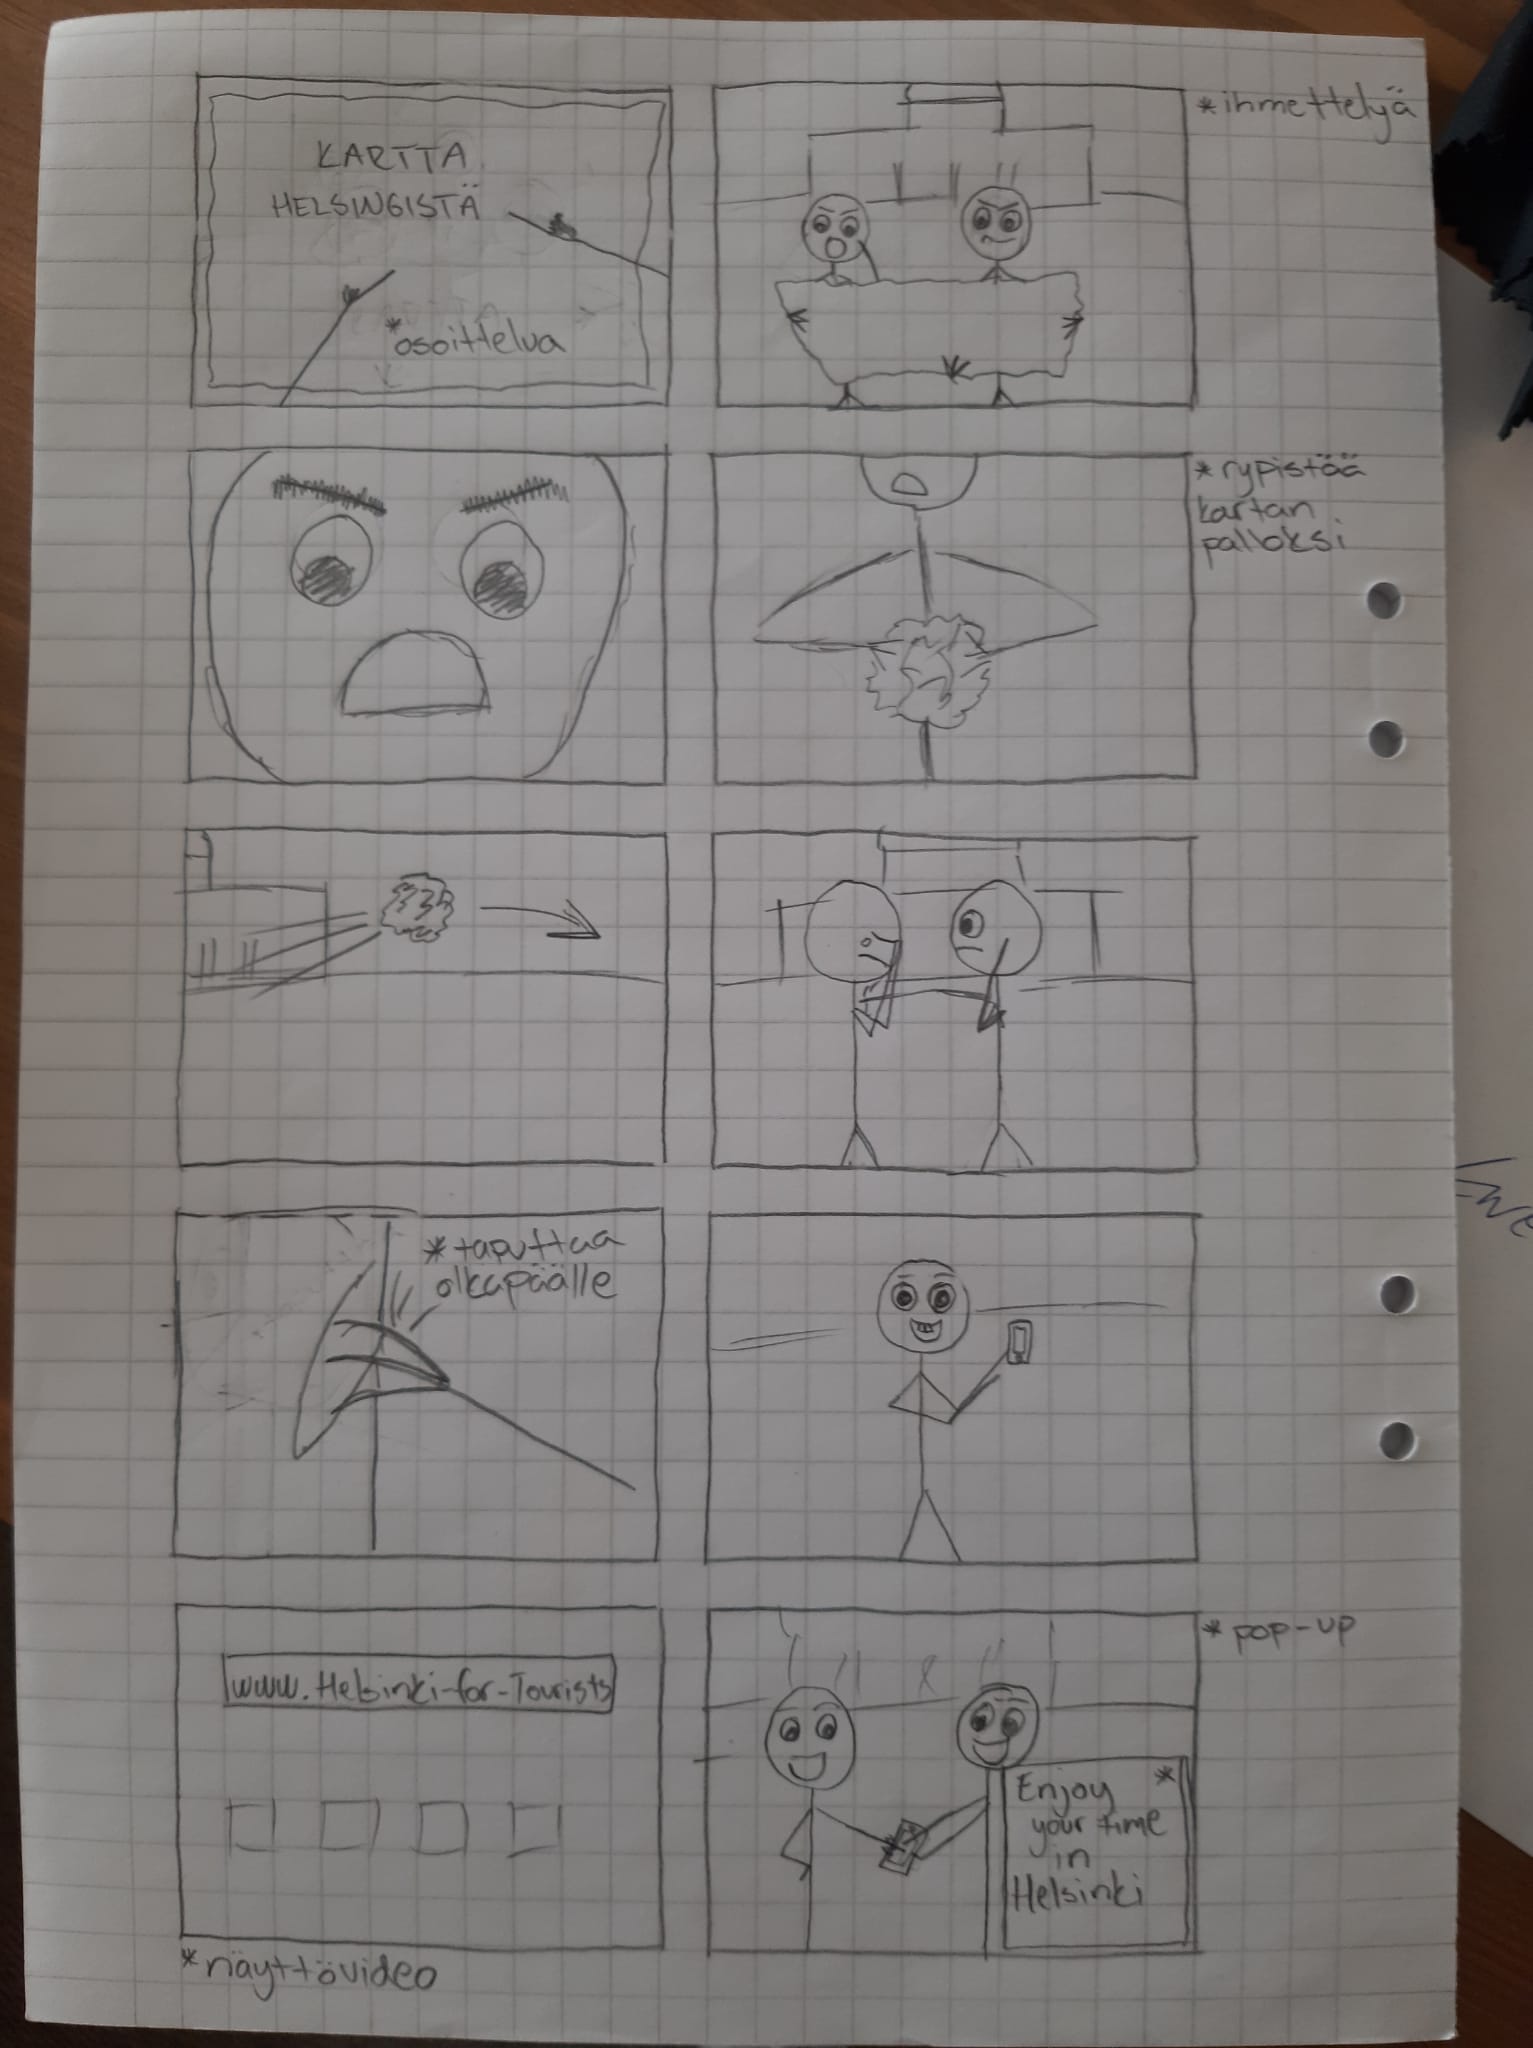 KARTTA
HELSINGISTÄ
*osoittelua
*ihmettelyä
*rypistää
kartan
palloksi
*taputtaa
olkapäälle
www.Helsinki-for-Tourists
*näyttövideo
*pop-up
Enjoy *
your time
in
Helsinki